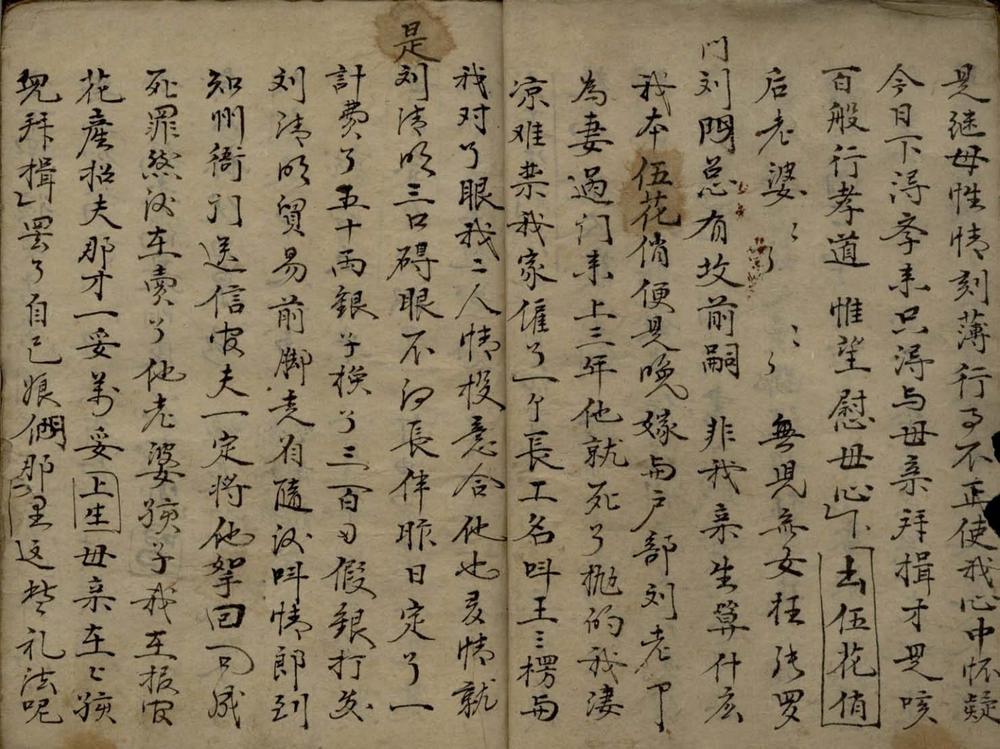 是继母性情刻薄行事不正使我心中怀疑
今日下淂孝来只淂与母亲拜揖才是咳
百般行孝道 惟望慰母心下 去伍花俏
后老婆〻了 〻了 無児無女枉张罗
门刘門总有坟前嗣 非我亲生算什広
我本伍花俏便是晚嫁与户部刘老卩
為妻過门来上三年他就死了抛的我凄
凉难禁我家僱了一个長工名叫王三楞与
我对了眼我二人情投意合他也有情就
是刘清明三口碍眼不得長伴昨日定了一
計费了五十両銀子换了三百両假銀打发
刘清明貿易前脚走着随後叫情郎到
知州衙门送信官夫一定将他拏回问成
死罪然後在卖了他老婆孩子我在报官
花産招夫那才一妥萬妥上生母亲在上孩
児拜揖罢了自己娘們那里这些礼法呢